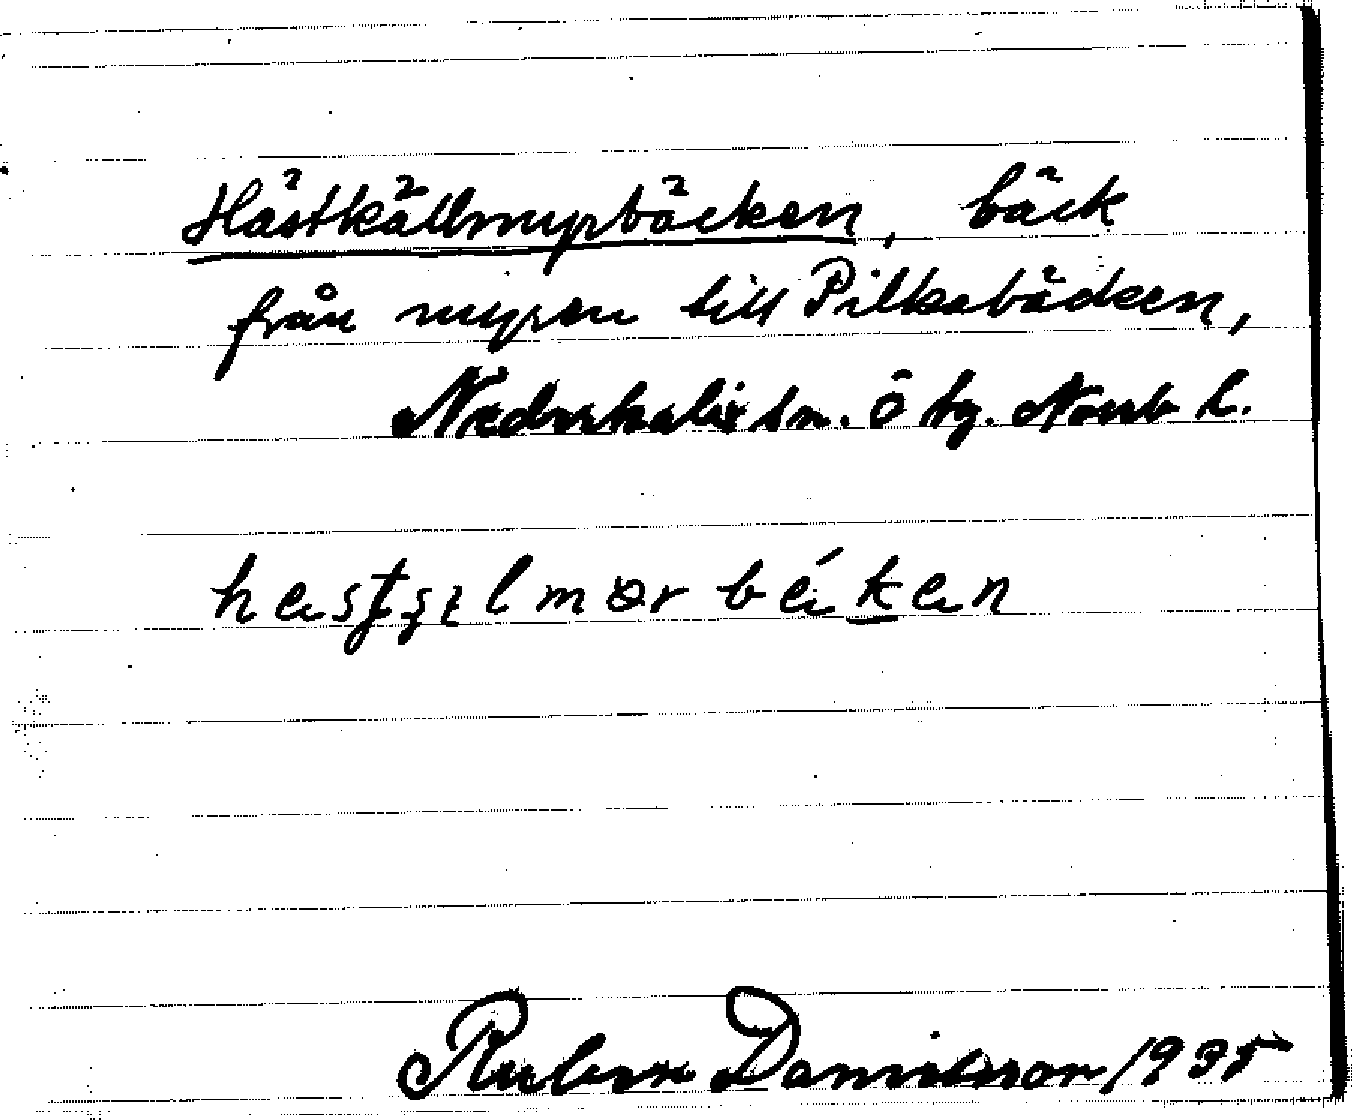 Hästkällmyrbäcken, bäck
från myren till Pilkabäcken,
Nederkalix sn. Ö tg. Norrb l.
Ruben Danielsson 1935